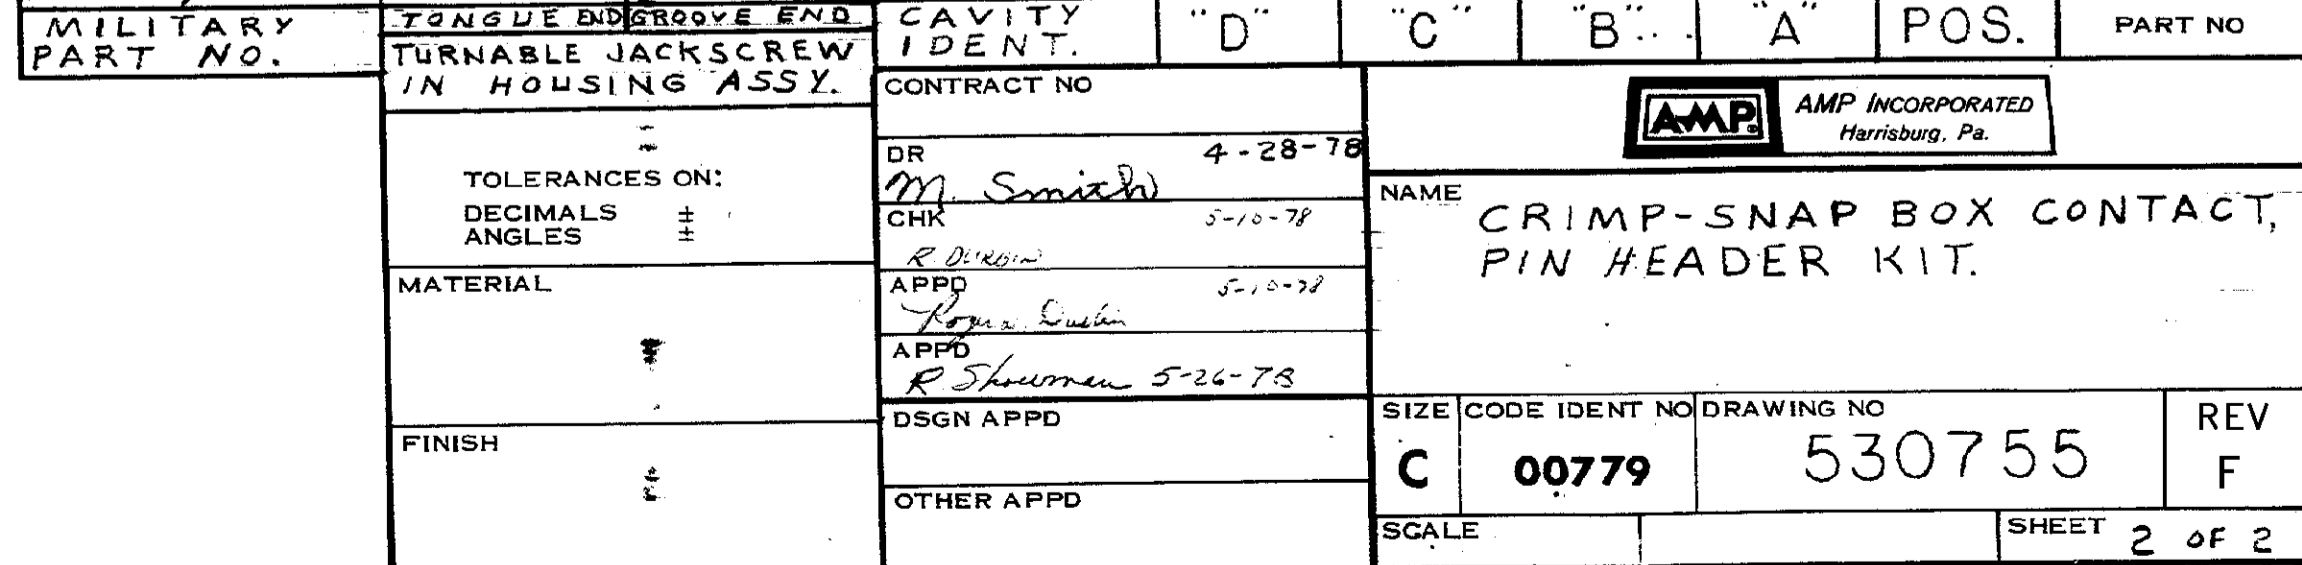 MILITARY
PART NO.
TONGUE END GROOVE END
TURNABLE JACKSCREW
IN HOUSING ASSY.
CAVITY
IDENT.
"D" "C" "B" "A" POS. PART NO
TOLERANCES ON:
DECIMALS ±
ANGLES ±
MATERIAL
FINISH
CONTRACT NO
DR 4-28-78
M. Smith
CHK 5-10-78
R. DURBIN
APPD 5-10-78
APPD
R Showman 5-26-78
DSGN APPD
OTHER APPD
AMP
AMP INCORPORATED
Harrisburg, Pa.
NAME
CRIMP-SNAP BOX CONTACT,
PIN HEADER KIT.
SIZE CODE IDENT NO DRAWING NO REV
C 00779 530755 F
SCALE SHEET 2 OF 2